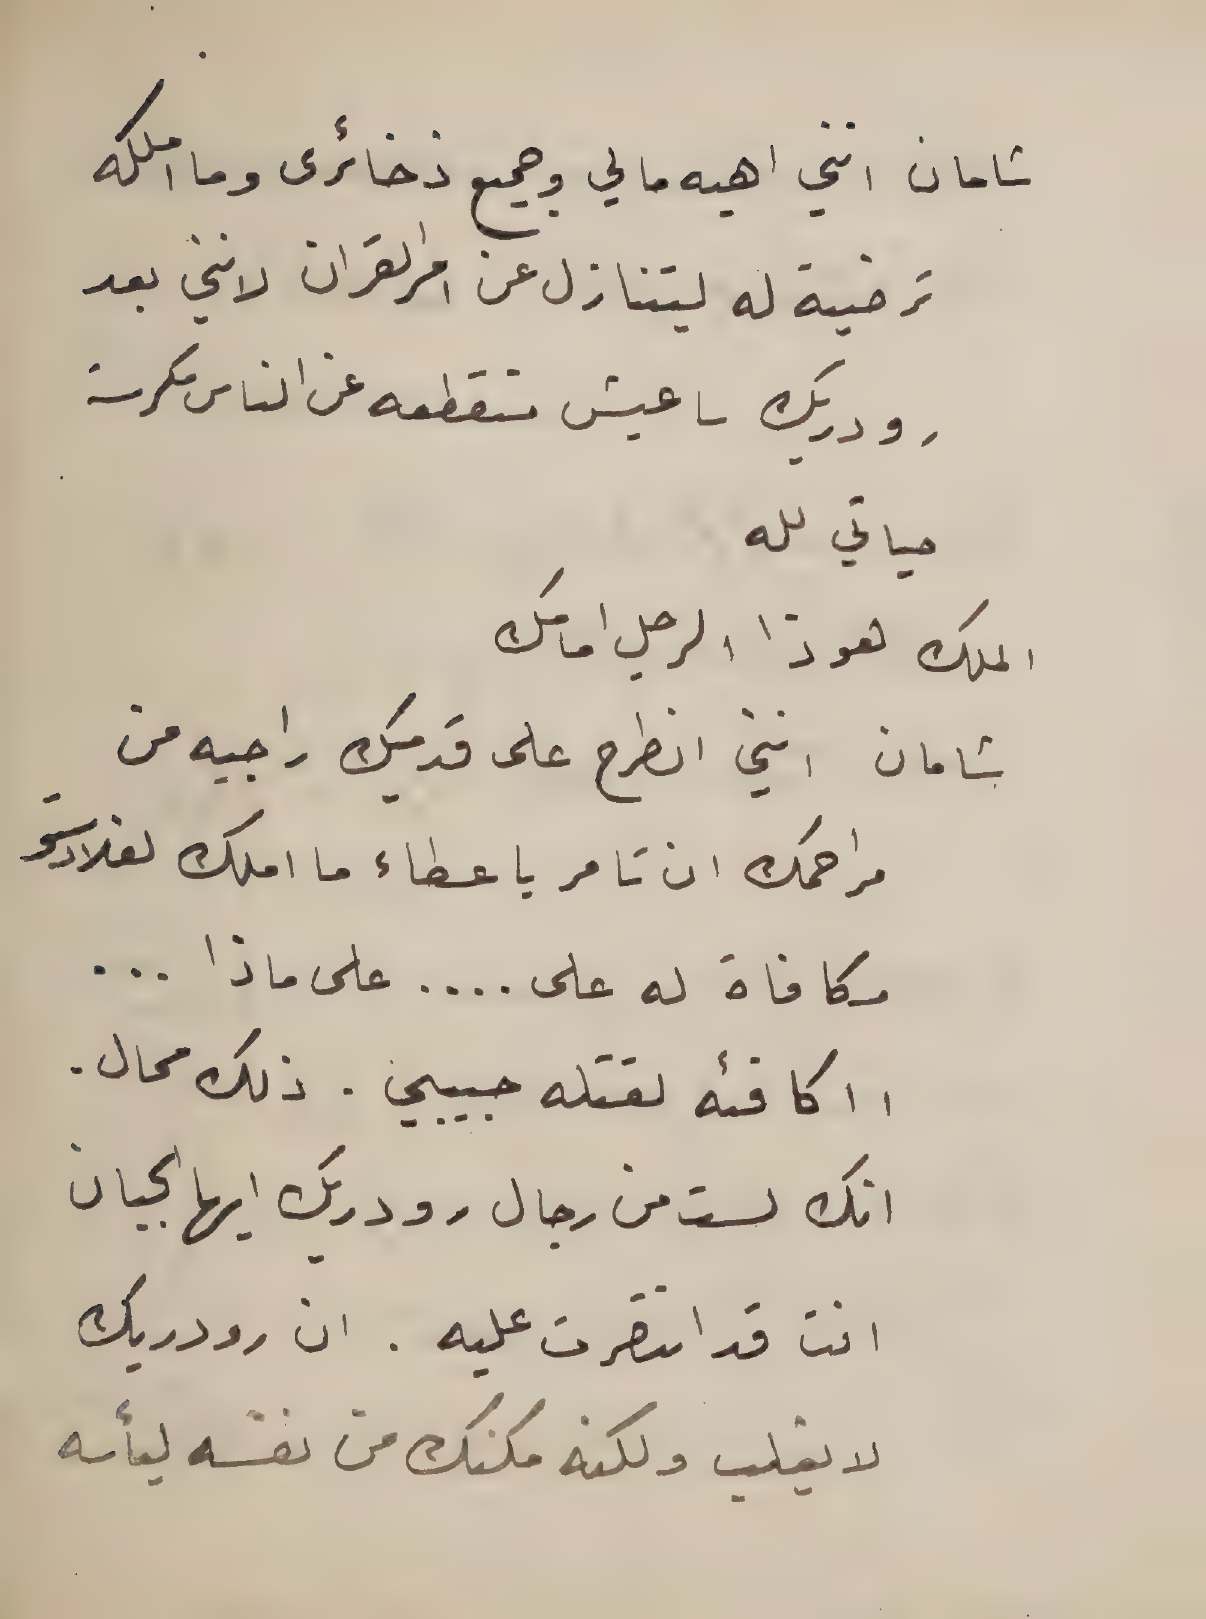 شامان انني اهبه مالي وجميع ذخائرى وما املكه
ترضية له ليتنازل عن امر القران لانني بعد
رودريك ساعيش منقطعه عن الناس مكرسة
حياتي لله
الملك هوذا الرجل امامك
شامان انني انطرح على قدميك راجيه من
مراحمك ان تامر باعطاء ما املك لغلادستو
مكافاة له على .... على ماذا ...
ااكافئه لقتله حبيبي . ذلك محال .
انك لست من رجال رودريك ايها الجبان
انت قد انتصرت عليه . ان رودريك
لا يغلب ولكنه مكنك من نفسه ليأسه